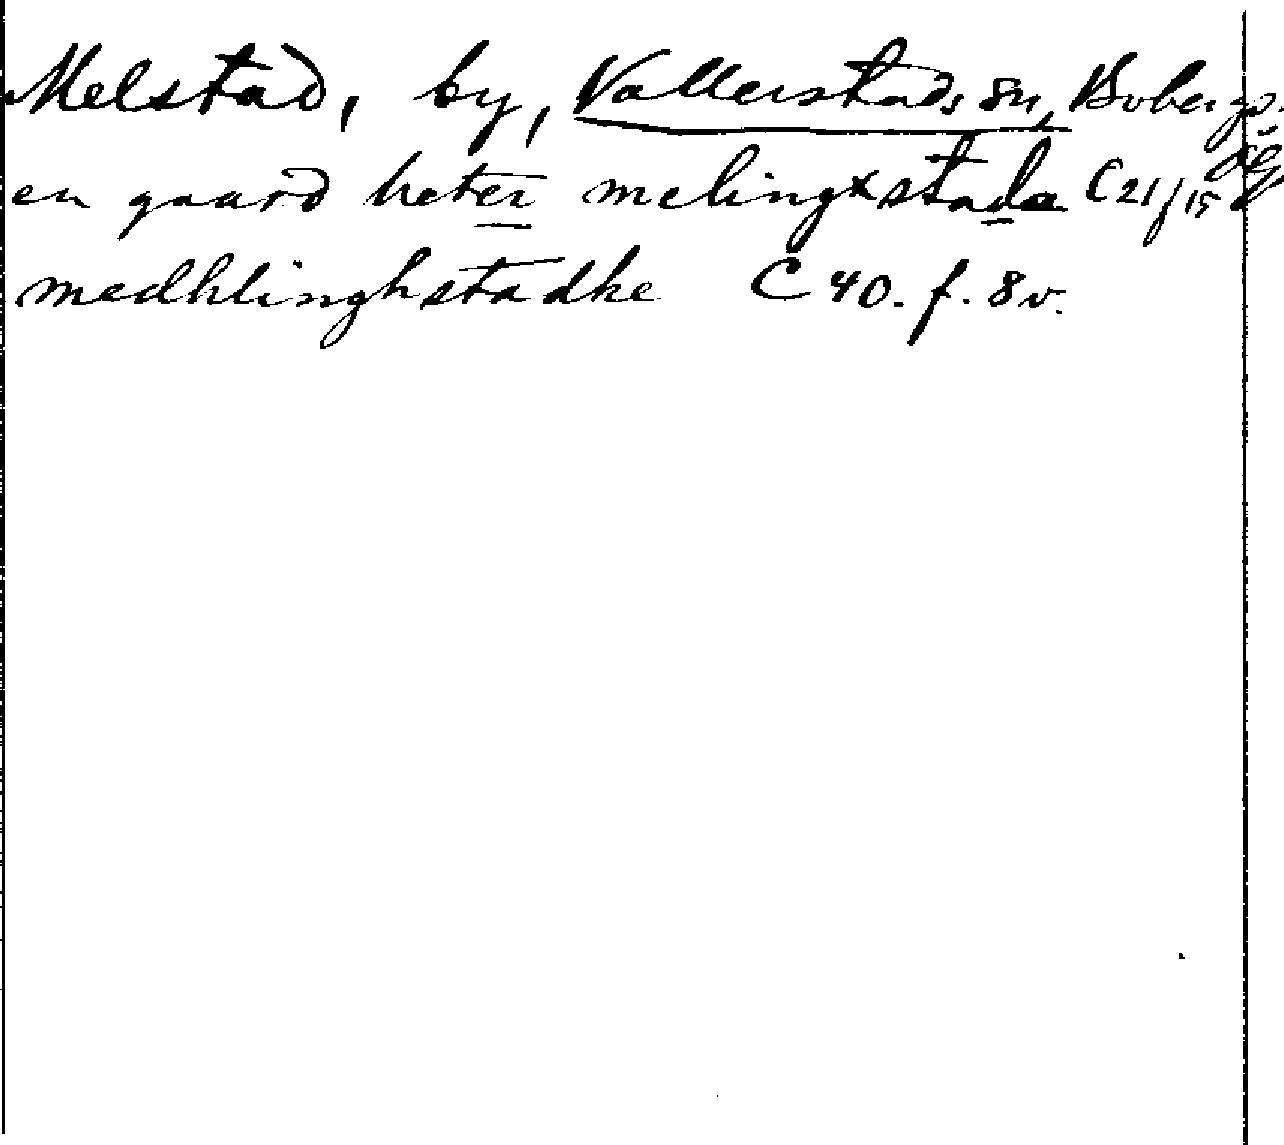 Melstad, by, Vallerstads sn, Bobergs
en gaard heter melingxstada C 21/15 Ög
medhlinghstadhe C 40. f. 8 v.